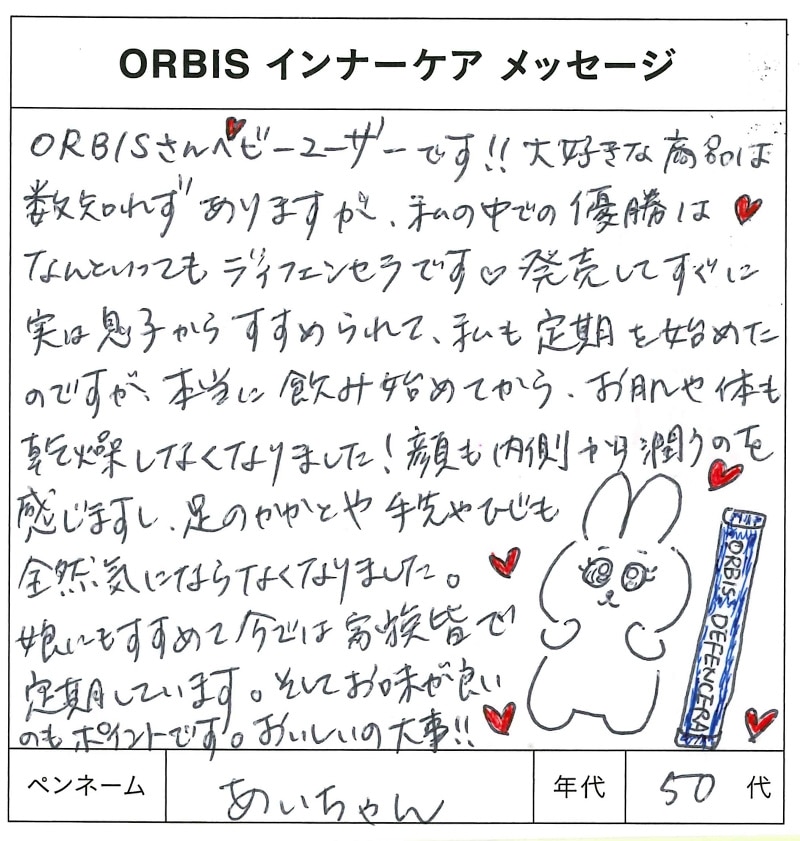 ORBIS インナーケア メッセージ
ORBISさんヘビーユーザーです!! 大好きな商品は
数知れずありますが、私の中での優勝は
なんといってもディフェンセラです♡発売してすぐに
実は息子からすすめられて、私も定期を始めた
のですが、本当に飲み始めてから、お肌や体も
乾燥しなくなりました！顔も内側から潤うのを
感じますし、足のかかとや手先やひじも
全然気にならなくなりました。
娘にもすすめて今では家族皆で
定期しています。そしてお味が良い
のもポイントです。おいしいの大事!!
ORBIS DEFENCERA
ペンネーム あいちゃん 年代 50代